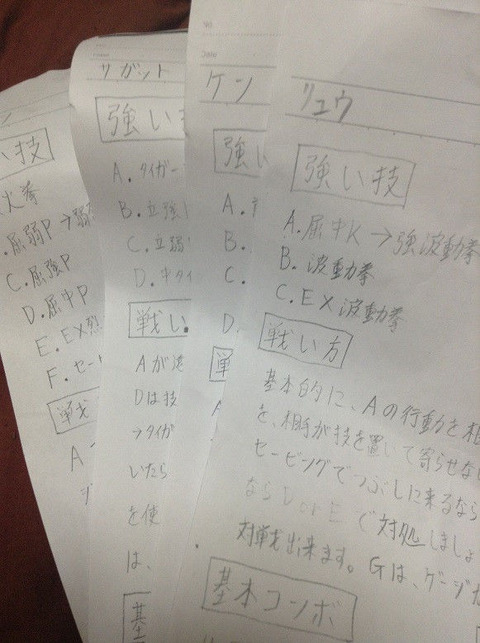 い技
火拳
屈弱P→弱
C.屈強P
D.屈中P
E.EX烈
F.セー
戦
A
サガット
強い
A.タイガー
B.立強
C.立弱
D.中タイ
戦い
Aが
Dは技
→タイガ
いたら
を使
は、
基
ケン
強い
A.
B.
C.
D.
戦
リュウ
強い技
A.屈中K→強波動拳
B.波動拳
C.EX波動拳
戦い方
基本的に、Aの行動を相
を、相手が技を置いて寄らせな
セービングでつぶしに来るなら
ならD or Eで対処しましょ
対戦出来ます。Gは、ゲージ
基本コンボ